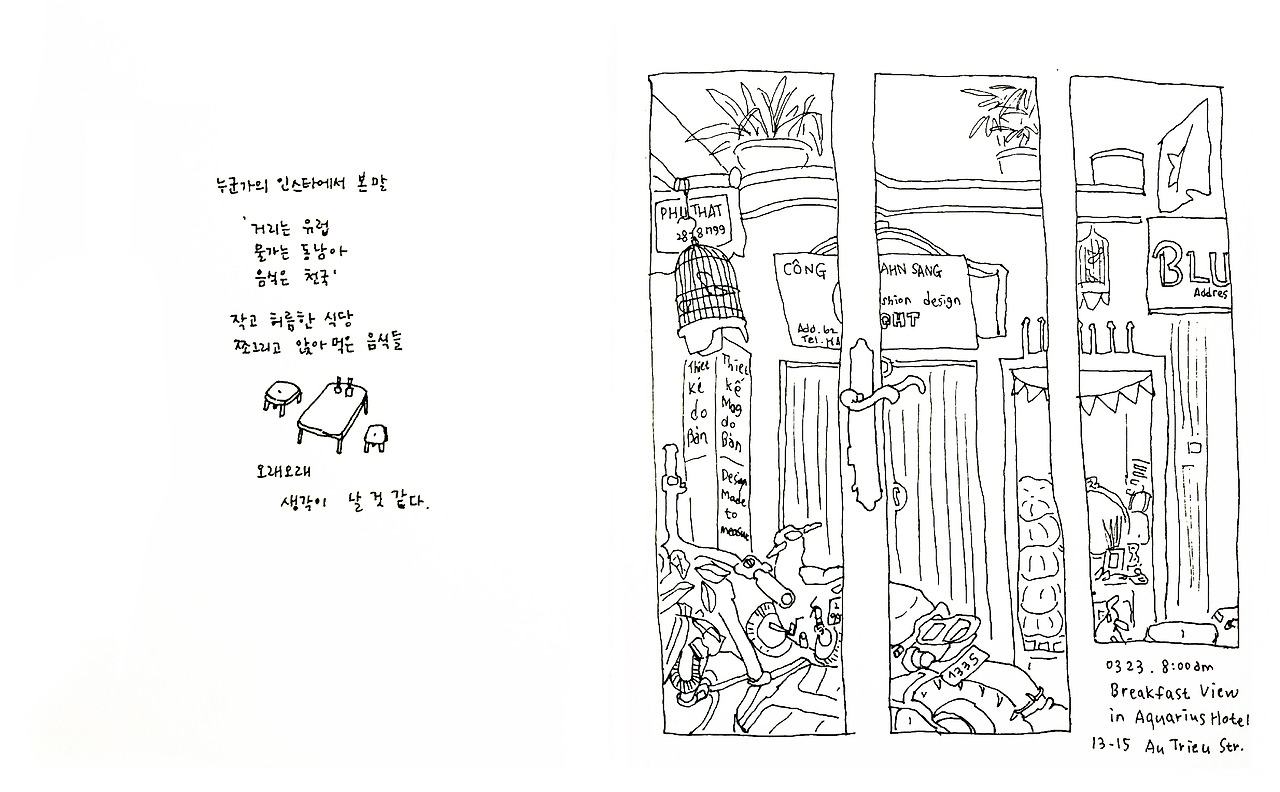 누군가의 인스타에서 본 말
'거리는 유럽
물가는 동남아
음식은 천국'
작고 허름한 식당
쪼그리고 앉아 먹은 음식들
오래오래
생각이 날 것 같다.
PHU THAT
CÔNG AHN SANG
shion design
GHT
Add. 62
Tel.
BLU
Addres
Thiet
kế
do
Bản
Thiet
kế
May
do
Bản
Design
Made
to
measure
1335
0323. 8:00am
Breakfast View
in Aquarius Hotel
13-15 Au Trieu Str.